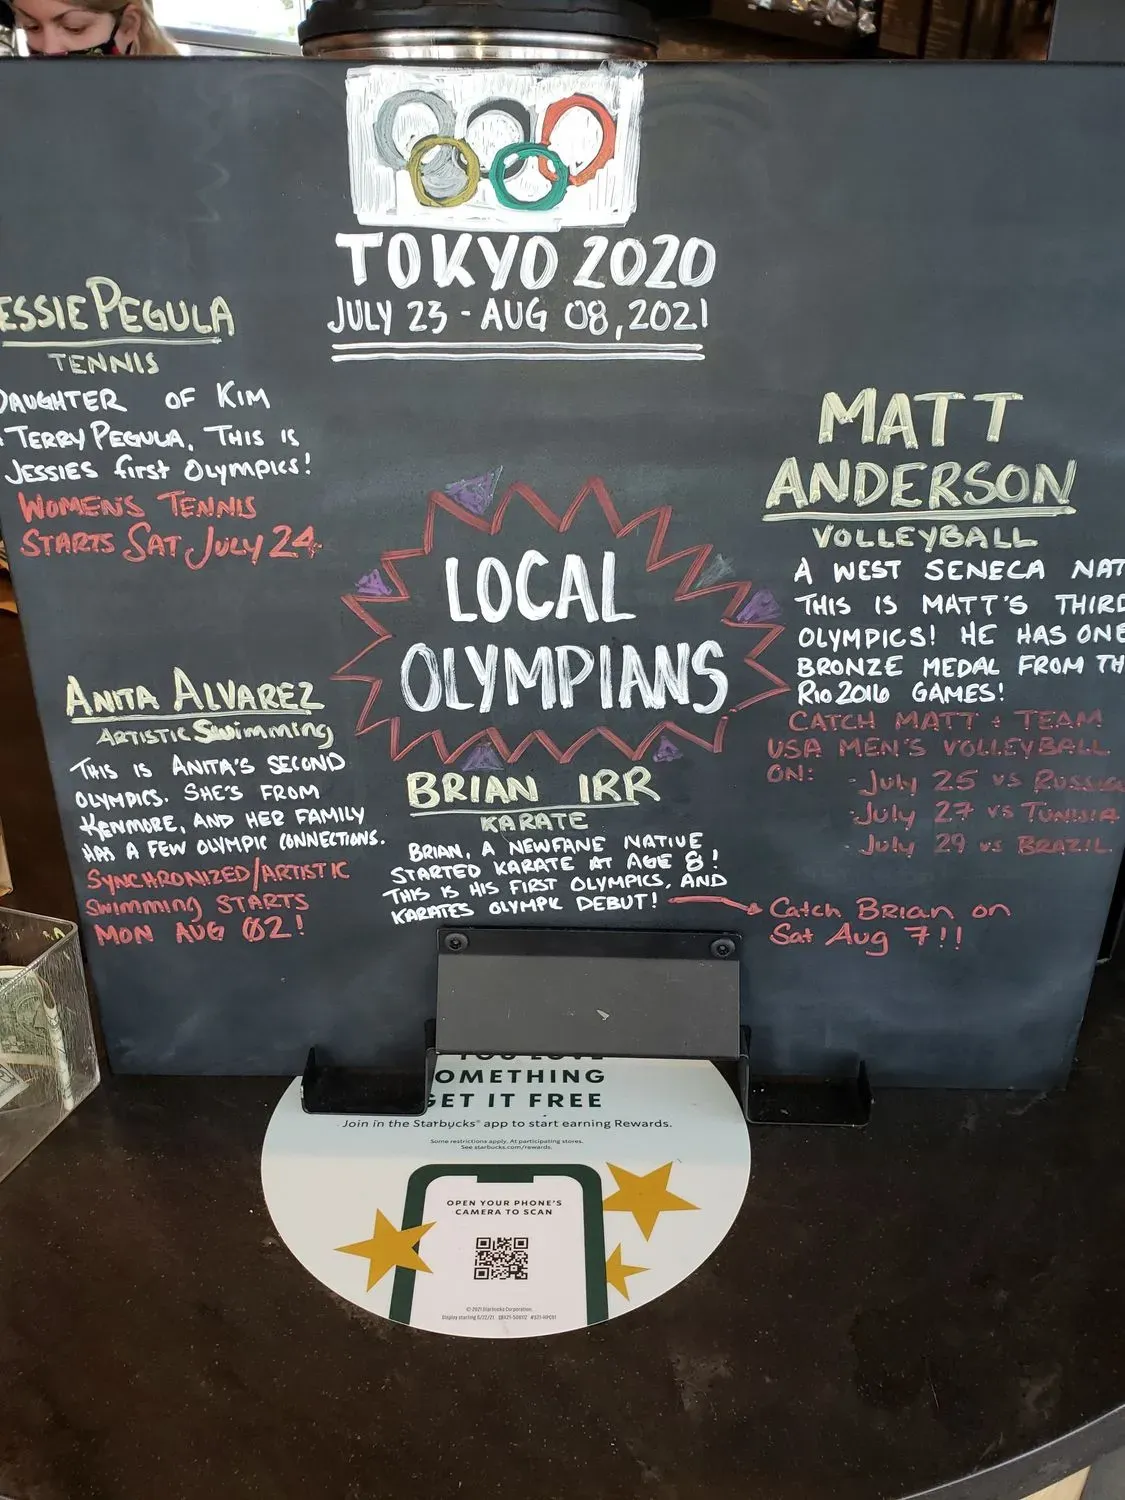 TOKYO 2020
JULY 23 - AUG 08, 2021
ESSIE PEGULA
TENNIS
DAUGHTER OF KIM
TERRY PEGULA, THIS IS
JESSIES first OLYMPICS!
WOMEN'S TENNIS
STARTS SAT JULY 24
LOCAL
OLYMPIANS
MATT
ANDERSON
VOLLEYBALL
A WEST SENECA NAT
THIS IS MATT'S THIRD
OLYMPICS! HE HAS ONE
BRONZE MEDAL FROM TH
RIO 2016 GAMES!
CATCH MATT + TEAM
USA MEN'S VOLLEYBALL
ON: - July 25 vs RUSSIA
- July 27 vs TUNISIA
- July 29 vs BRAZIL
ANITA ALVAREZ
ARTISTIC Swimming
THIS IS ANITA'S SECOND
OLYMPICS. SHE'S FROM
KENMORE, AND HER FAMILY
HAS A FEW OLYMPIC CONNECTIONS.
SYNCHRONIZED/ARTISTIC
Swimming STARTS
MON AUG 02!
BRIAN IRR
KARATE
BRIAN, A NEWFANE NATIVE
STARTED KARATE AT AGE 8!
THIS IS HIS FIRST OLYMPICS, AND
KARATES OLYMPIC DEBUT!
Catch BRIAN on
Sat Aug 7!!
YOU LOVE
OMETHING
GET IT FREE
Join in the Starbucks® app to start earning Rewards.
Some restrictions apply. At participating stores.
See starbucks.com/rewards.
OPEN YOUR PHONE'S
CAMERA TO SCAN
© 2021 Starbucks Corporation.
Display starting 6/22/21